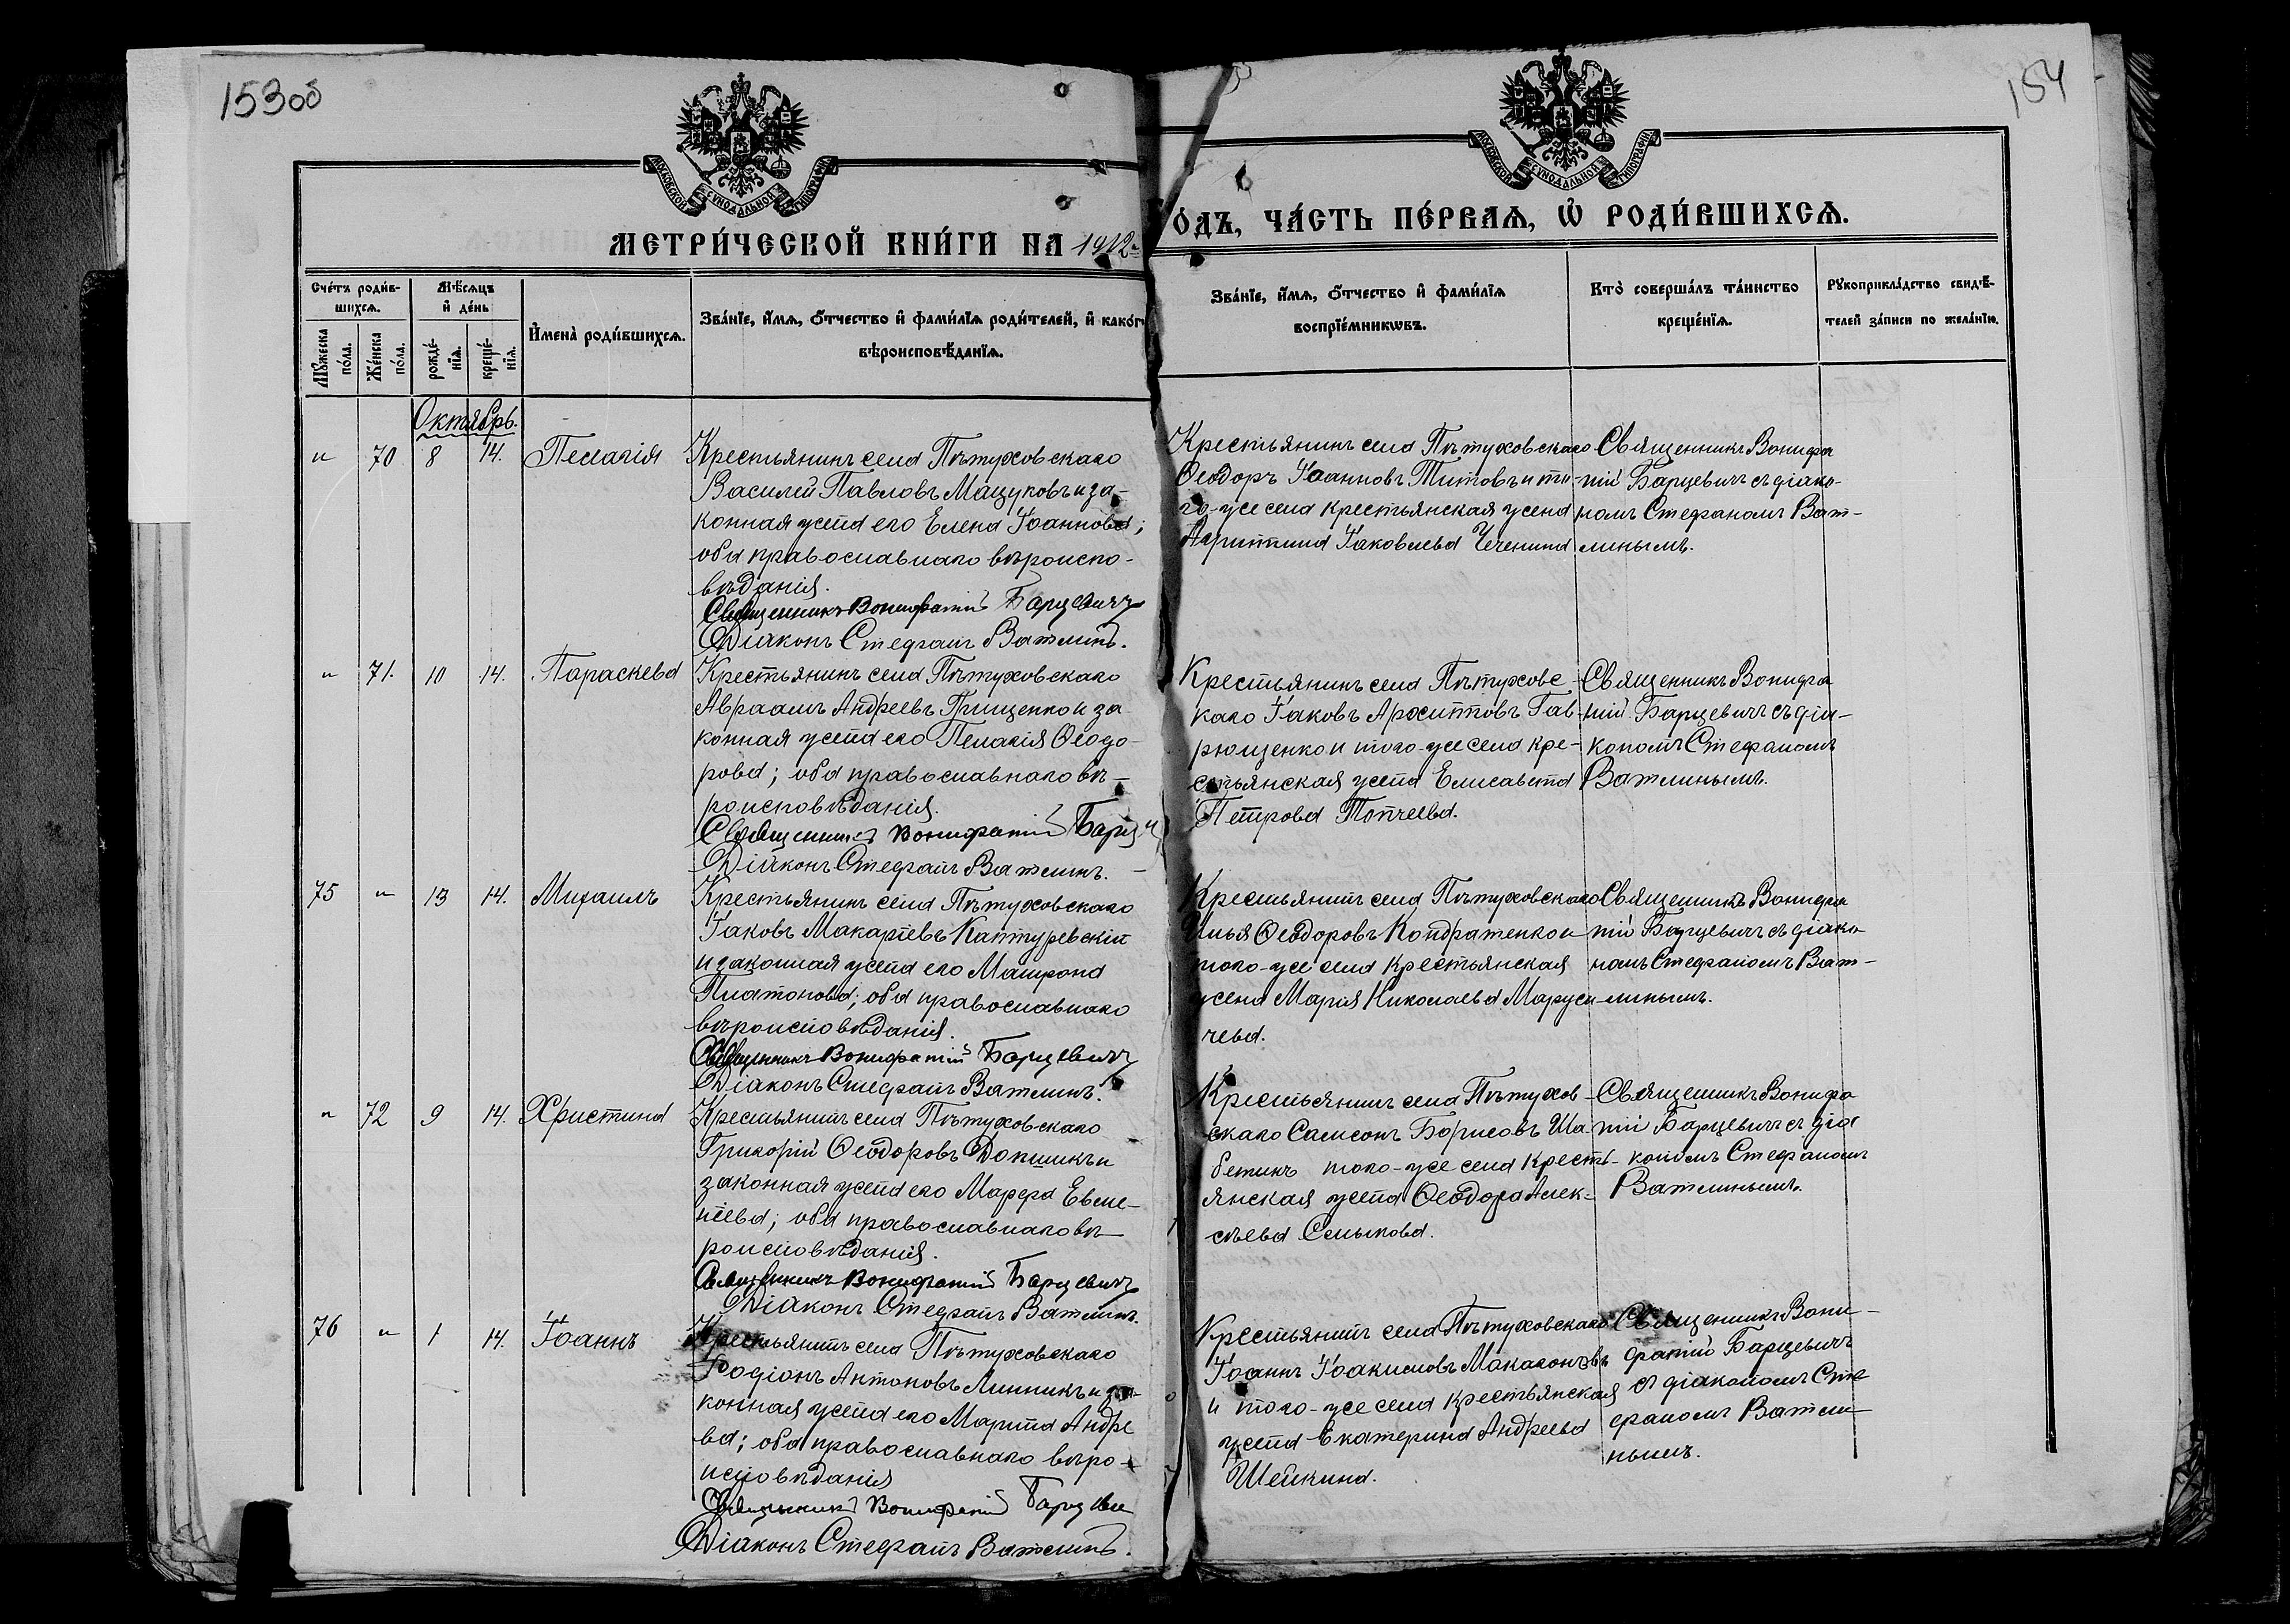 153об
154
МОСКОВСКОЙ СУНОДАЛЬНОЙ ТИПОГРАФІИ
МОСКОВСКОЙ СУНОДАЛЬНОЙ ТИПОГРАФІИ
МЕТРИ́ЧЕСКОЙ КНИ́ГИ НА 1912
ОДЪ, ЧА́СТЬ ПЕ́РВАЯ, Ѡ҆ РОДИ́ВШИХСЯ.
Сче́тъ роди́в-
шихся.
Мꙋ́жеска по́ла.
Же́нска по́ла.
Мѣ́сяцъ и҆ де́нь
рожде́-нїя.
креще́-нїя.
И҆мена̀ роди́вшихся.
Зва́нїе, и҆́мя, ѻ҆́тчество и҆ фами́лїя роди́телей, и҆ како́г
вѣроисповѣ́данїя.
Зва́нїе, и҆́мя, ѻ҆́тчество и҆ фами́лїя
воспрїе́мникѡвъ.
Кто̀ соверша́лъ та́инство
креще́нїя.
Рꙋкоприкла́дство свидѣ́-
телей за́писи по жела́нїю.
Октябрь.
" 70 8 14. Пелагія
Крестьянинъ села Пѣтуховскаго
Василій Павловъ Мацуковъ и за-
конная жена его Елена Іоаннова;
оба православнаго вѣроиспо-
вѣданія.
Священникъ Вонифатій Барцевичъ
Діаконъ Стефанъ Ватлинъ.
Крестьянинъ села Пѣтуховскаго
Ѳеодоръ Іоанновъ Титовъ и то-
го-же села крестьянская жена
Агриппина Іаковлева Чечеина
Священникъ Вонифа
тій Барцевичъ съ діако-
номъ Стефаномъ Ват-
линымъ.
" 71. 10 14. Параскева
Крестьянинъ села Пѣтуховскаго
Авраамъ Андреевъ Грищенко и за
конная жена его Пелагія Ѳеодо-
рова; оба православнаго вѣ-
роисповѣданія.
Священникъ Вонифатій
Діаконъ Стефанъ Ватлинъ.
Крестьянинъ села Пѣтуховс-
каго Іаковъ Архипповъ Гав-
рющенко и того-же села кре-
стьянская жена Елисавета
Петрова Топчеева.
Священникъ Вонифа
тій Барцевичъ съ діа-
кономъ Стефаномъ
Ватлинымъ.
75 " 13 14. Михаилъ
Крестьянинъ села Пѣтуховскаго
Іаковъ Макаріевъ Каптуревскій
и законная жена его Матрона
Платонова; оба православнаго
вѣроисповѣданія.
Священникъ Вонифатій Барцевичъ
Діаконъ Стефанъ Ватлинъ.
Крестьянинъ села Пѣтуховскаго
Илья Ѳеодоровъ Кондратенко и
того-же села крестьянская
жена Марія Николаева Маруси
чева.
Священникъ Вонифа
тій Барцевичъ съ діако
номъ Стефаномъ Ват-
линымъ.
" 72 9 14. Христина
Крестьянинъ села Пѣтуховскаго
Григорій Ѳеодоровъ и
законная жена его Марфа Евме-
ніева; оба православнаго вѣ-
роисповѣданія.
Священникъ Вонифатій Барцевичъ
Діаконъ Стефанъ Ватлинъ.
Крестьянинъ села Пѣтухов-
скаго Самсонъ Борисовъ Ша
бетикъ того-же села кресть-
янская жена Ѳеодора Алек-
сѣева
Священникъ Вонифа
тій Барцевичъ съ діа
кономъ Стефаномъ
Ватлинымъ.
76 " 1 14. Іоаннъ
Крестьянинъ села Пѣтуховскаго
Родіонъ Антоновъ Линникъ и за-
конная жена его Марина Андре
ва; оба православнаго вѣро-
исповѣданія
Священникъ Вонифатій
Діаконъ Стефанъ Ватлинъ.
Крестьянинъ села Пѣтуховскаго
Іоаннъ Іоакимовъ Макагоновъ
и того-же села крестьянская
жена Екатерина Андреева
Шейкина.
Священникъ Вони-
фатій Барцевичъ
съ діакономъ Сте
фаномъ Ватли-
нымъ.